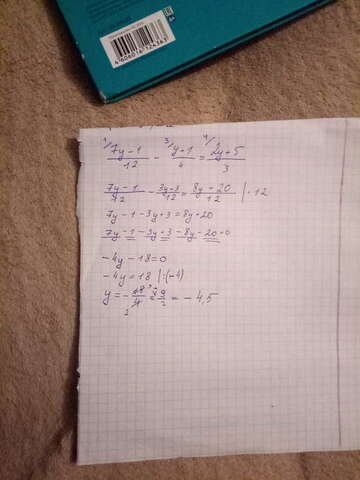 4606016124363
1/ 7y-1/12 - 3/ y+1/4 = 4/ 2y+5/3
7y-1/12 - 3y+3/12 = 8y+20/12 | · 12
7y-1-3y+3=8y+20
7y-1-3y+3-8y-20=0
-4y-18=0
-4y=18 |:(-4)
y=-18/4 = 9/2 = -4,5